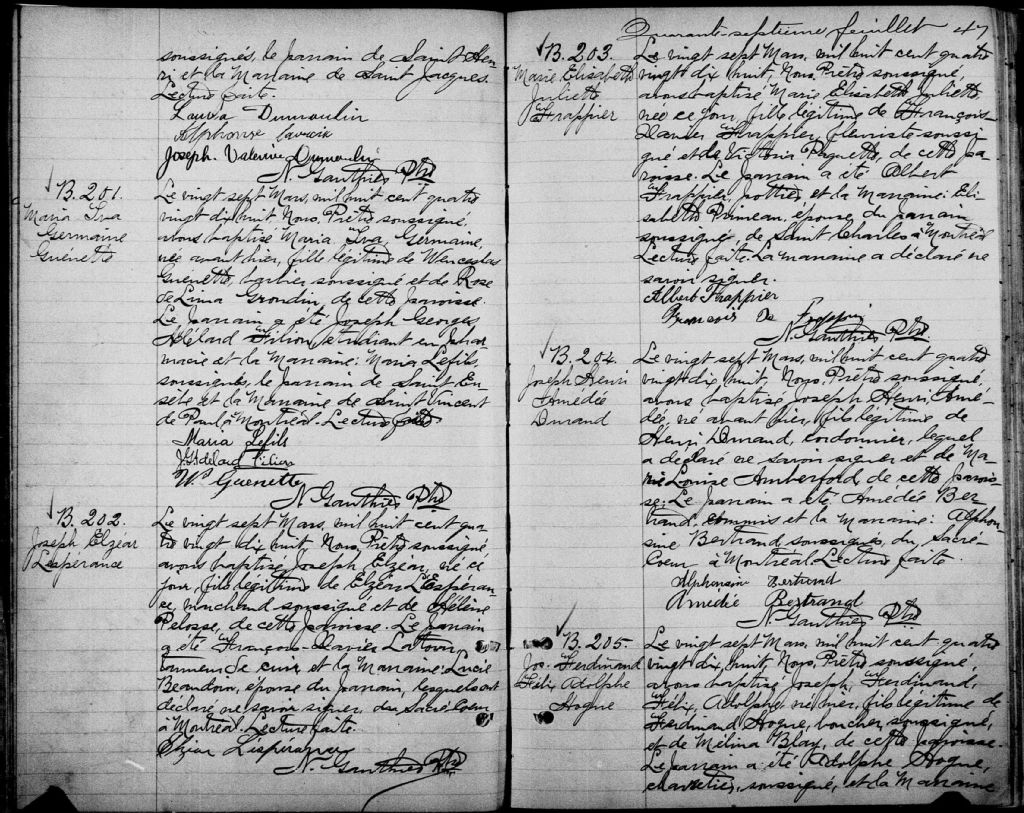 soussignés, le parrain de Saint Hen-
ri et la Marraine de Saint Jacques.
Lecture faite.
Laura Dumoulin
Alphonse
Joseph. Valerie Dumoulin
N. Gauthier Ptre
B. 201.
Maria Iva
Germaine
Guenette
Le vingt sept Mars, mil huit cent quatre
vingt dix huit, Nous, Prêtre soussigné,
avons baptisé Maria, Iva, Germaine,
née avant hier, fille légitime de Wenceslas
Guenette, barbier soussigné et de Rose
de Lima Grondin, de cette paroisse.
Le parrain a été Joseph Georges
Hélard Filion, etudiant en phar-
macie et la Marraine: Maria Lefils,
soussignés, le parrain de Saint Eu-
sèbe et la Marraine de Saint Vincent
de Paul, à Montréal. Lecture faite.
Maria Lefils
W. Guenette
N. Gauthier Ptre
B. 202.
Joseph Elzéar
Lespérance
Le vingt sept Mars, mil huit cent qua-
tre vingt dix huit, Nous, Prêtre soussigné,
avons baptisé Joseph Elzéar, né ce
jour, fils légitime de Elzéar Lespéran-
ce, marchand soussigné et de Hélène
Pelosse, de cette paroisse. Le parrain
a été François-Xavier Latour,
tanneur de cuir, et la Marraine: Lucie
Beaudoin, épouse du parrain, lesquels ont
déclaré ne savoir signer, du Sacré Coeur
à Montréal. Lecture faite.
Elzéar Lespérance
N. Gauthier Ptre
Quarante-septième feuillet 47
B. 203.
Marie Elisabeth
Juliette
Frappier
Le vingt sept Mars, mil huit cent quatre
vingt dix huit, Nous, Prêtre soussigné,
avons baptisé Marie Elisabeth Juliette,
née ce jour, fille légitime de François
Xavier Frappier, fleuriste soussi-
gné et de Victoria Paquette, de cette pa-
roisse. Le parrain a été Albert
Frappier, et la Marraine: Eli-
sabeth Primeau, épouse du parrain
soussigné, de Saint Charles à Montréal.
Lecture faite. La marraine a déclaré ne
savoir signer.
Albert Frappier
N. Gauthier Ptre
B. 204.
Joseph Henri
Amédée
Durand
Le vingt sept Mars, mil huit cent quatre
vingt dix huit, Nous, Prêtre soussigné,
avons baptisé Joseph Henri, Amé-
dée, né avant hier, fils légitime de
Henri Durand, cordonnier, lequel
a déclaré ne savoir signer et de Ma-
rie Louise Amberford de cette parois-
se. Le parrain a été Amédée Ber-
trand, commis et la Marraine: Alphon-
sine Bertrand soussignés, du Sacré
Coeur à Montréal. Lecture faite.
Alphonsine Bertrand
Amédée Bertrand
N. Gauthier Ptre
B. 205.
Jos. Ferdinand
Félix Adolphe
Hogue
Le vingt sept Mars, mil huit cent quatre
vingt dix huit, Nous, Prêtre soussigné,
avons baptisé Joseph, Ferdinand,
Félix, Adolphe, né hier, fils légitime de
Ferdinand Hogue, boucher, soussigné,
et de Mélina Blay, de cette paroisse.
Le parrain a été Adolphe Hogue,
charretier, soussigné, et la Marraine